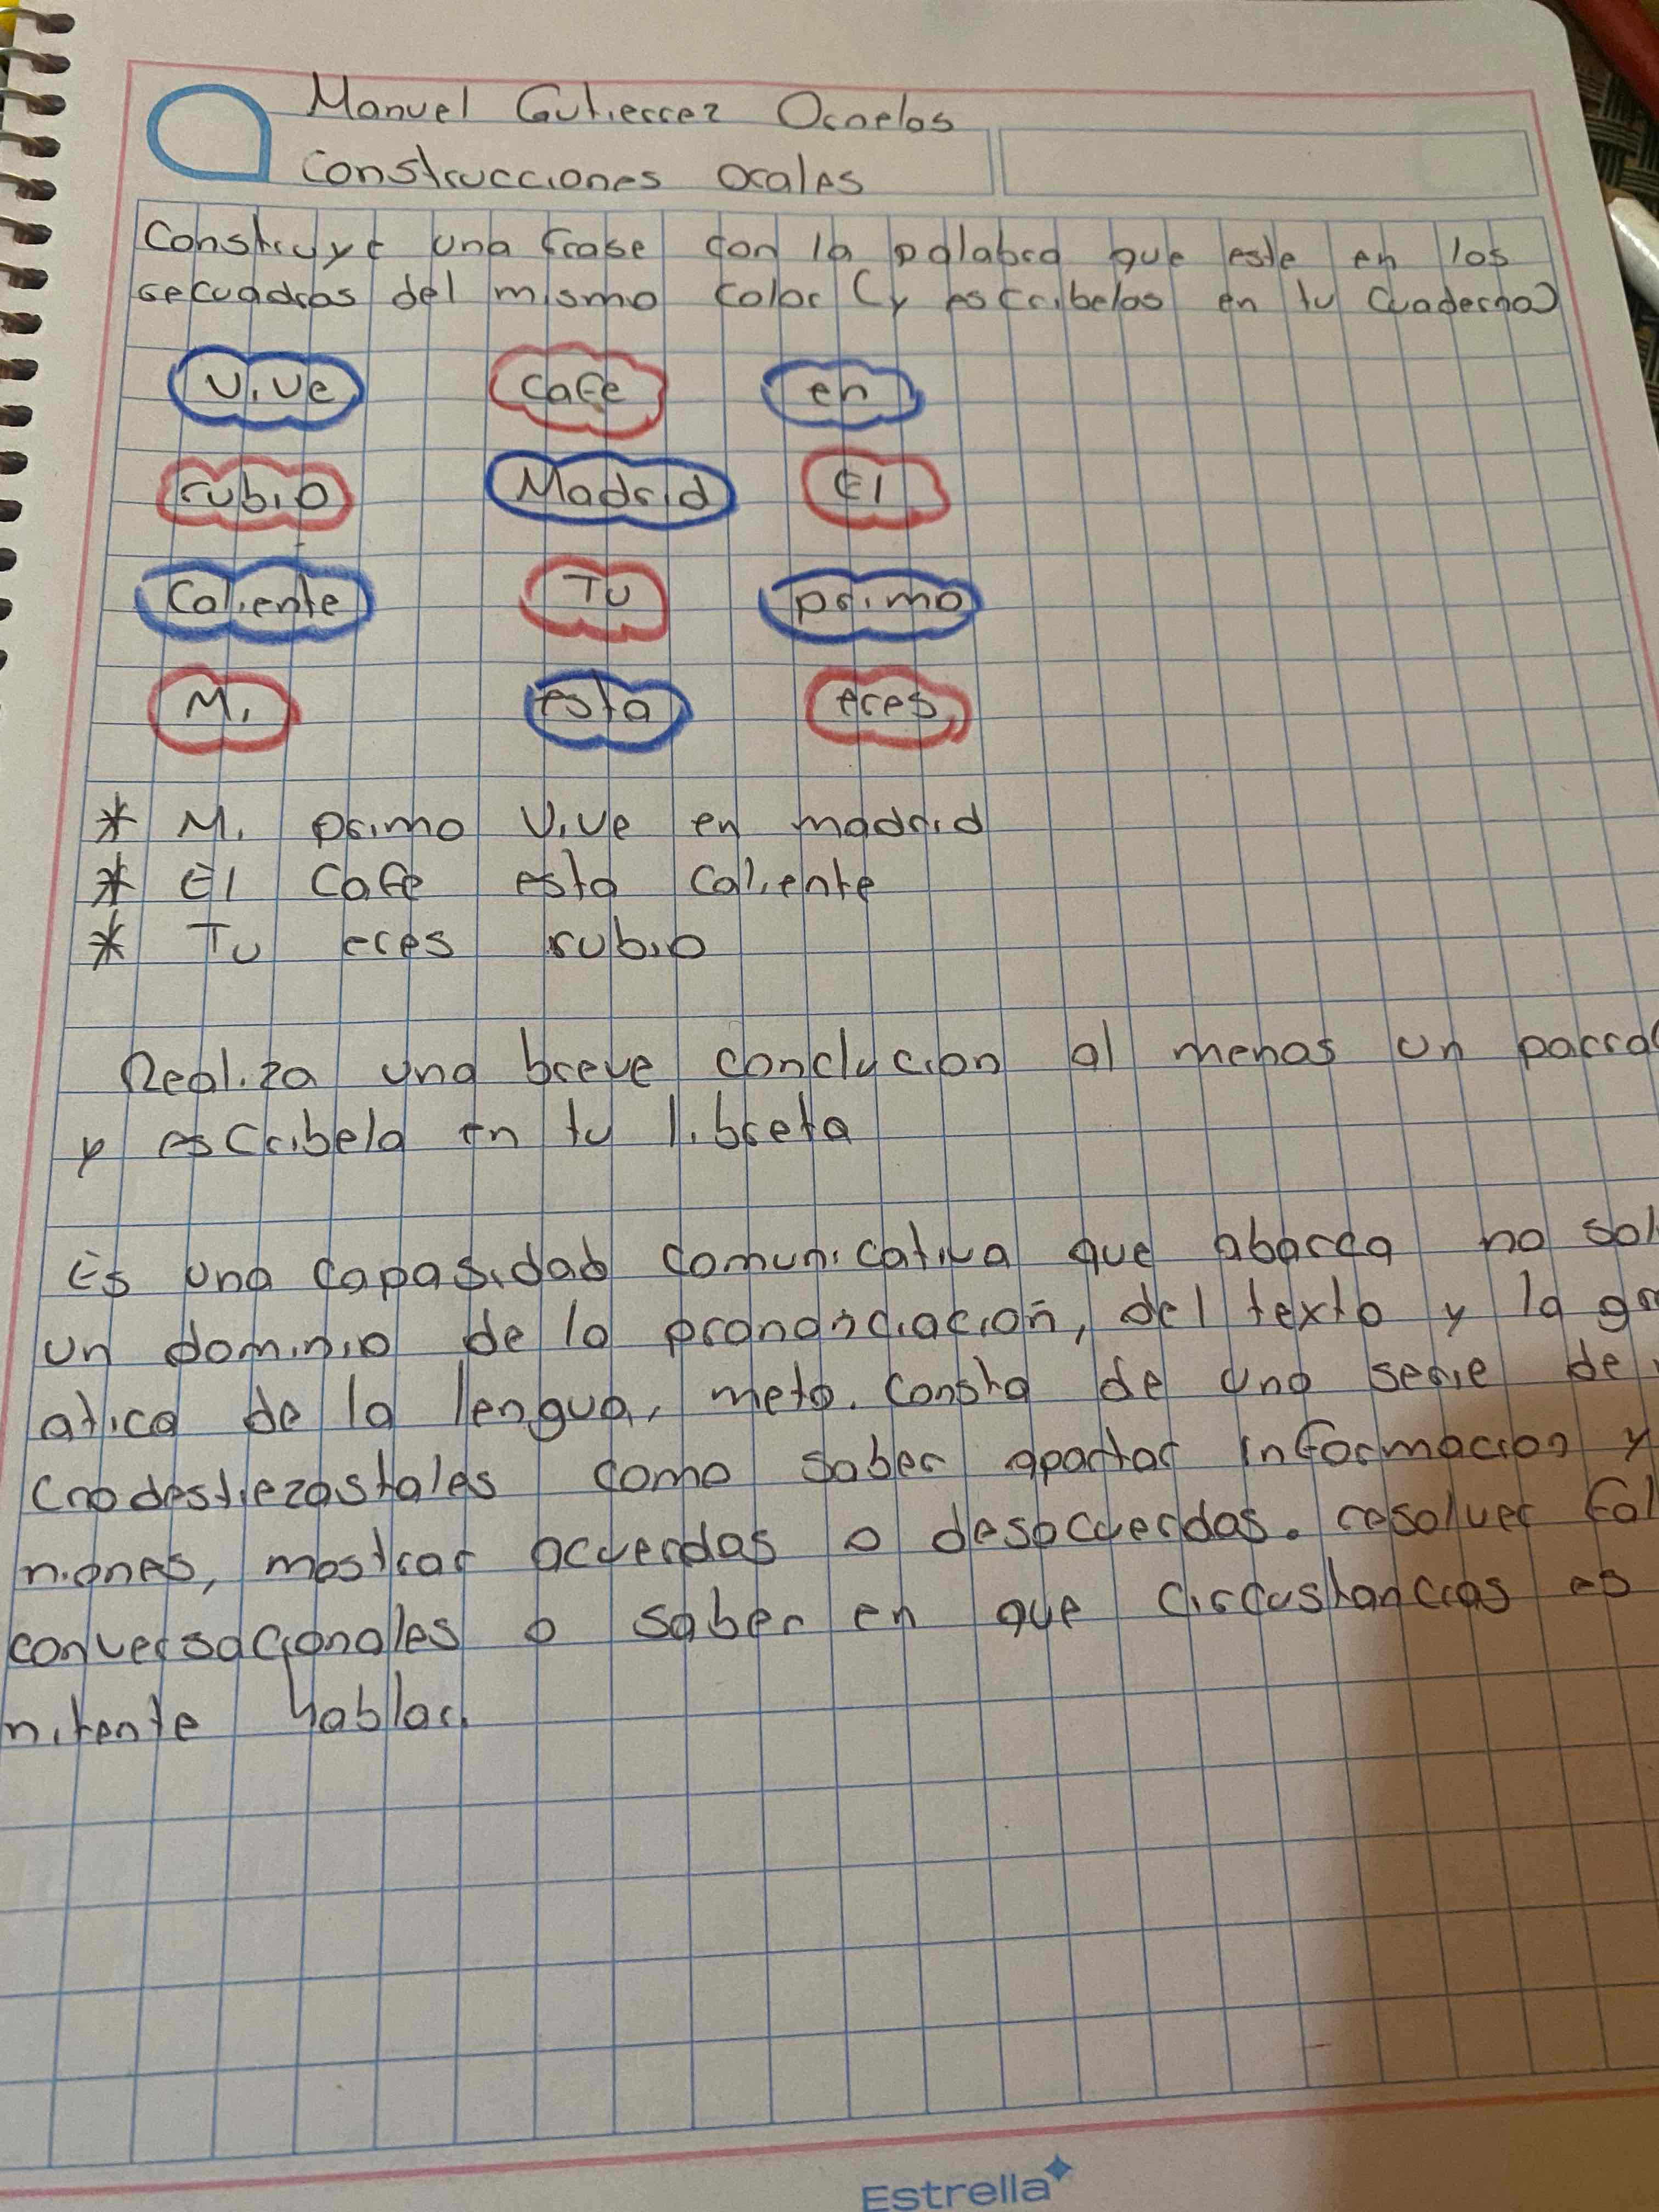 Manuel Gutierrez Ornelas
Construcciones orales
Construye una frase con la palabra que este en los
recuadros del mismo color (y escribelas en tu cuaderno)
Vive cafe en
rubio Madrid El
Caliente Tu primo
Mi esta eres
* Mi primo Vive en madrid
* El Cafe esta Caliente
* Tu eres rubio
Realiza una breve conclucion al menos un parra
y escribela en tu libreta
Es una capasidad comunicativa que abarca no sol
un dominio de la pronondciación, del texto y la gr
atica de la lengua, meta. Consta de una serie de
como saber aportar informacion y
niones, mostrar acuerdas o desacuerdas. resolver fal
conversacionales o saber en que circustancias es
nitente hablar.
Estrella